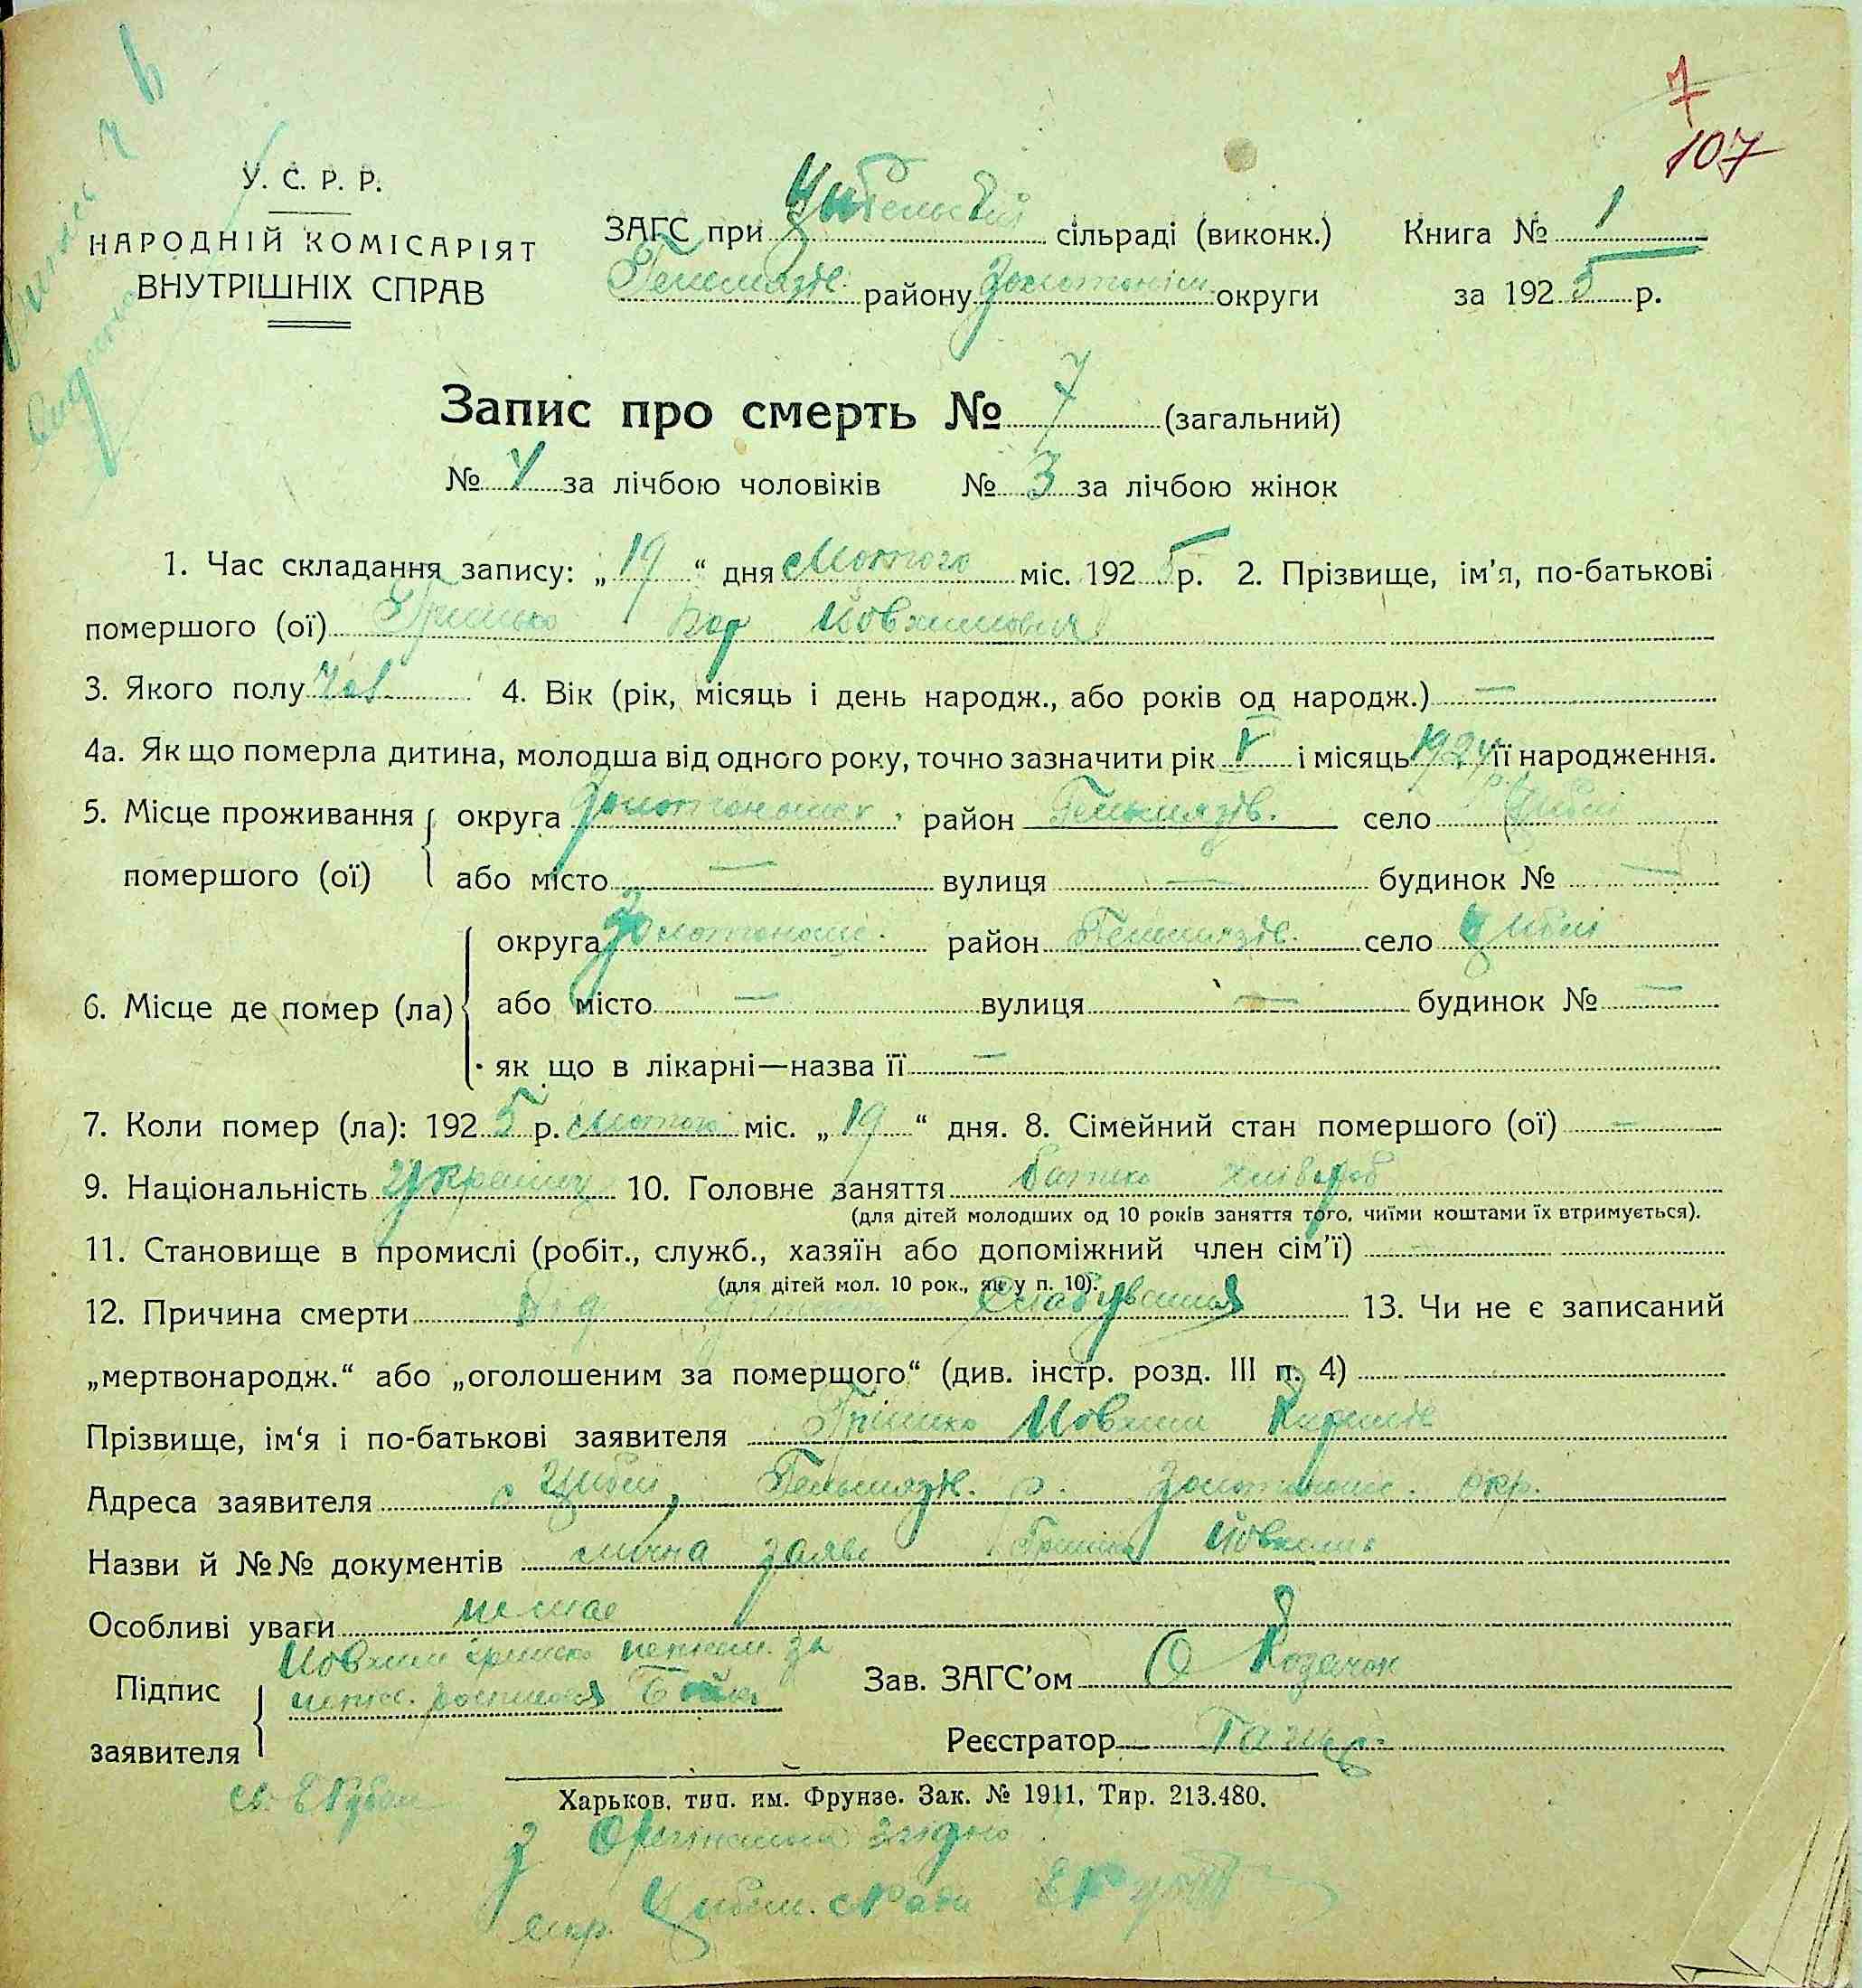 7
107
У. С. Р. Р.
НАРОДНІЙ КОМІСАРІЯТ
ВНУТРІШНІХ СПРАВ
ЗАГС при Цибельській сільраді (виконк.) Книга № 1
Гельмязів. району Золотоніш. округи за 1925 р.
Запис про смерть № 7 (загальний)
№ 4 за лічбою чоловіків № 3 за лічбою жінок
1. Час складання запису: „19“ дня Лютого міс. 1925 р. 2. Прізвище, ім'я, по-батькові
помершого (ої) Грицько Йовхимович
3. Якого полу чол. 4. Вік (рік, місяць і день народж., або років од народж.) —
4а. Як що померла дитина, молодша від одного року, точно зазначити рік V і місяць 1924 р. її народження.
5. Місце проживання помершого (ої) округа Золотоношськ. район Гельмязів. село Циблі
або місто — вулиця — будинок № —
6. Місце де помер (ла) округа Золотонош. район Гельмязів. село Циблі
або місто — вулиця — будинок № —
як що в лікарні—назва її —
7. Коли помер (ла): 1925 р. Лютого міс. „19“ дня. 8. Сімейний стан помершого (ої) —
9. Національність Українец 10. Головне заняття батько хлібороб
(для дітей молодших од 10 років заняття того, чиїми коштами їх втримується).
11. Становище в промислі (робіт., служб., хазяїн або допоміжний член сім'ї)
(для дітей мол. 10 рок., як у п. 10).
12. Причина смерти Від 13. Чи не є записаний
„мертвонародж.“ або „оголошеним за помершого“ (див. інстр. розд. III п. 4)
Прізвище, ім'я і по-батькові заявителя Грицько Йовхим
Адреса заявителя с Циблі, Гельмязів. р. Золотонош. окр.
Назви й №№ документів заява Йовхима
Особливі уваги немає
Підпис заявителя Йовхим Грицько неписьм. за
неписьм. росписався
Зав. ЗАГС'ом Козачок
Реєстратор
Харьков. тип. им. Фрунзе. Зак. № 1911, Тир. 213.480.
З Орігіналом згідно
Секр. Цибл. с Ради